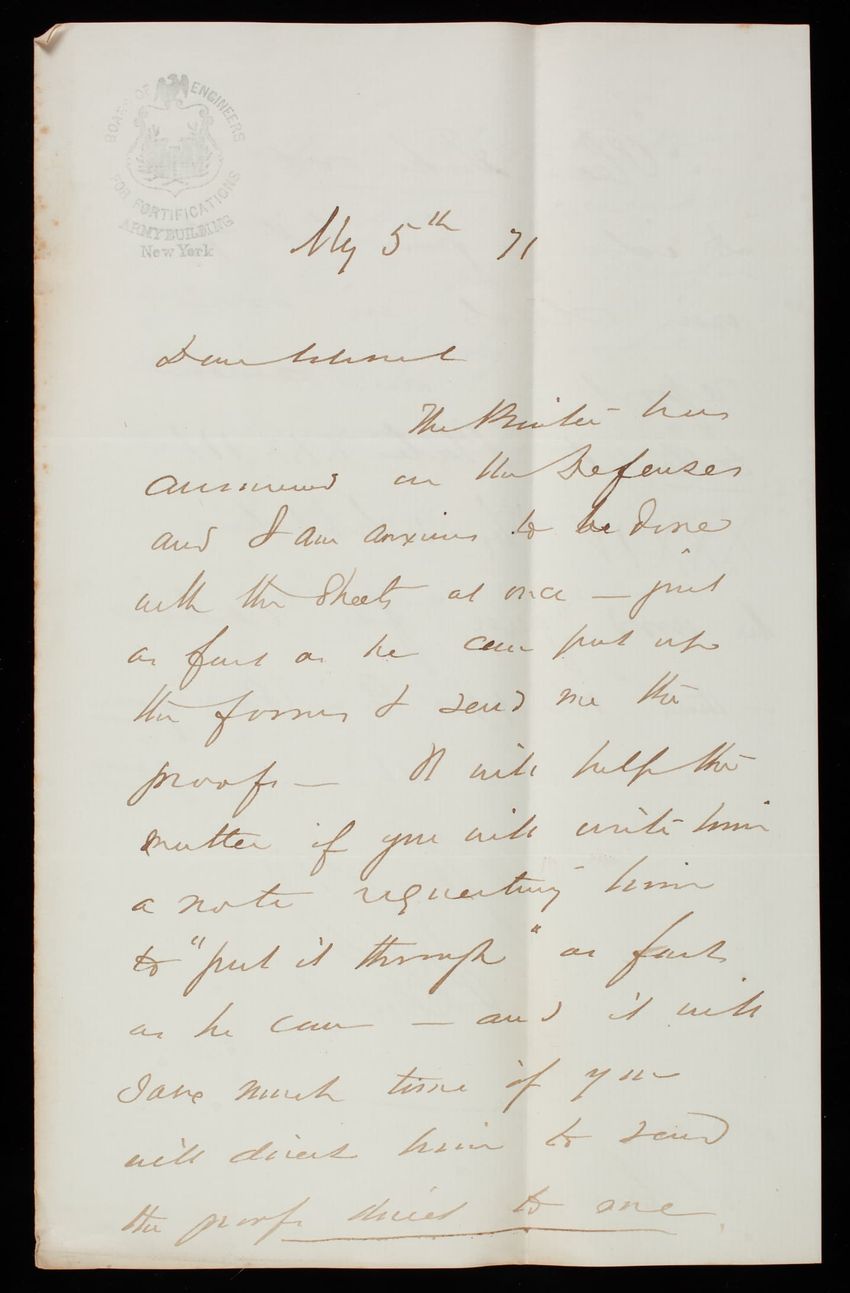 BOARD OF ENGINEERS
FOR FORTIFICATIONS
ARMY BUILDING
New York
My 5th 71
Dear Colonel
The Printer has
commenced on the Defenses
and I am anxious to be done
with the sheets at once — just
as fast as he can put up
the forms & send me the
proofs — It will help the
matter if you will write him
a note requesting him
to "put it through" as fast
as he can — and it will
save much time if you
will direct him to send
the proofs direct to me